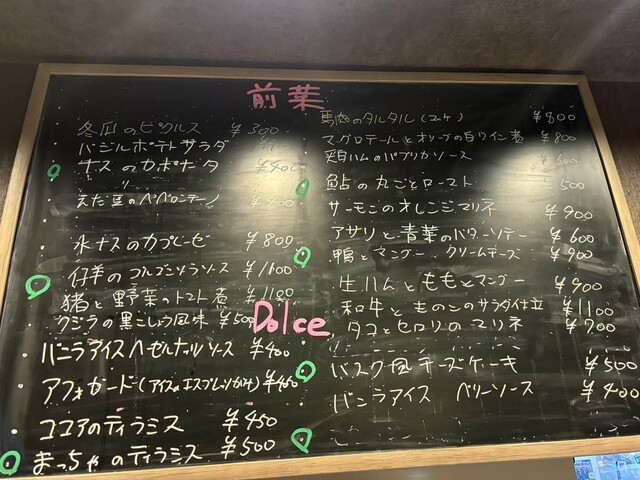 前菜
冬瓜のピクルス ¥300
バジルポテトサラダ
ナスのカポナータ ¥400
えだ豆のペペロンチーノ ¥400
水ナスのカプレーゼ ¥800
仔羊のゴルゴンゾラソース ¥1600
猪と野菜のトマト煮 ¥1100
クジラの黒こしょう風味 ¥500
馬肉のタルタル(ユッケ) ¥800
マグロテールとオリーブの白ワイン煮 ¥800
鶏ハムのパプリカソース ¥500
鮎の丸ごとロースト ¥500
サーモンのオレンジマリネ ¥900
アサリと青菜のバターソテー ¥600
鴨とマンゴー クリームチーズ ¥900
生ハムとももとマンゴー ¥900
和牛とものこのサラダ仕立 ¥1100
タコとセロリのマリネ ¥700
Dolce
バニラアイスヘーゼルナッツソース ¥400
アフォガード(アイスのエスプレッソがけ) ¥450
ココアのティラミス ¥450
まっちゃのティラミス ¥500
バスク風チーズケーキ ¥500
バニラアイス ベリーソース ¥400